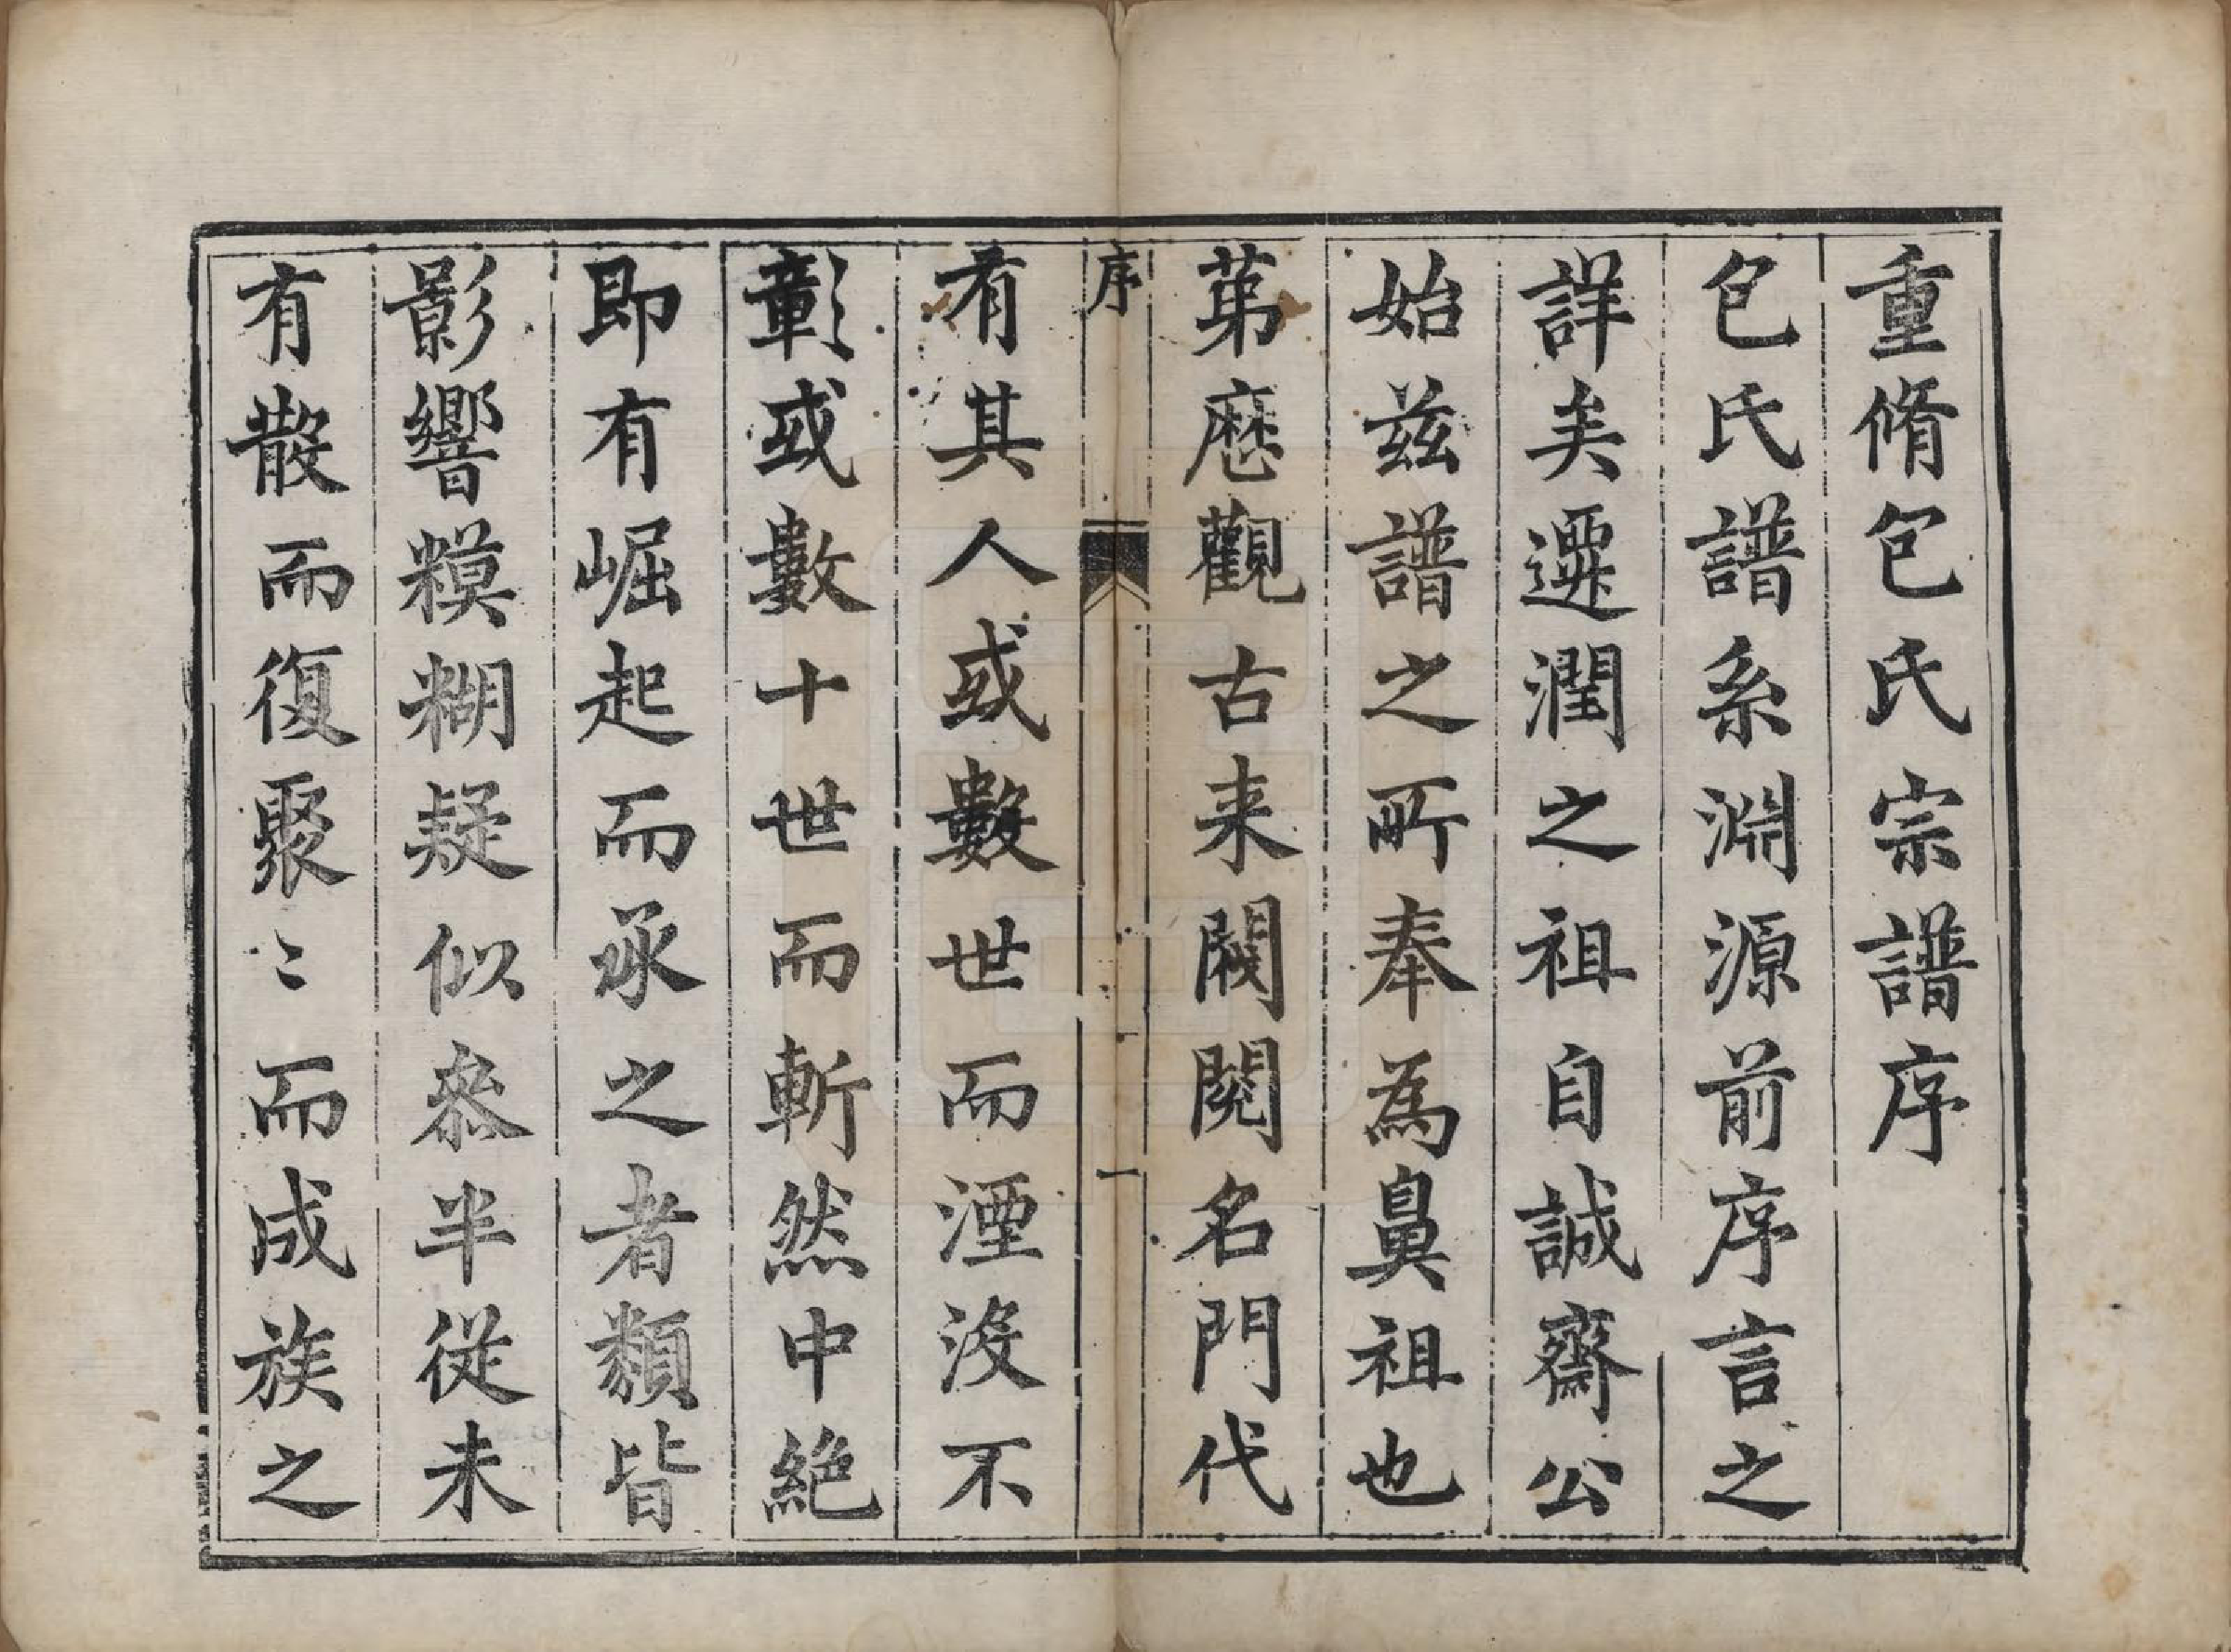 重脩包氏宗譜序
包氏譜系淵源前序言之
詳矣遷潤之祖自誠齋公
始茲譜之所奉為鼻祖也
苐歷觀古来閥閱名門代
序
一
有其人或數世而湮沒不
彰或數十世而斬然中絶
即有崛起而承之者類皆
影響糢糊疑似叅半從未
有散而復聚〻而成族之